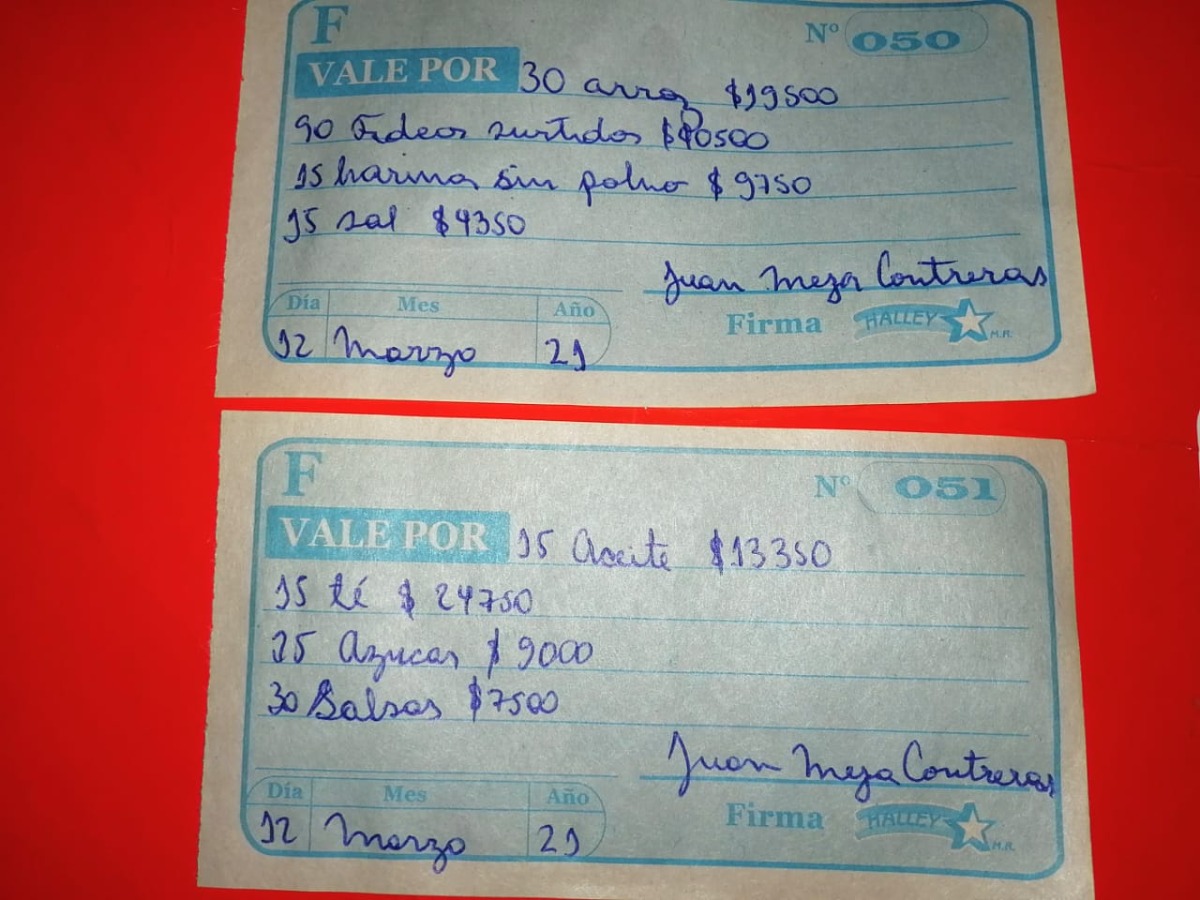 F
Nº 050
VALE POR 30 arroz $19500
90 Fideos surtidos $40500
15 harina sin polvo $9750
15 sal $4350
Juan Meza Contreras
Día Mes Año
Firma HALLEY M.R.
12 Marzo 21
F
Nº 051
VALE POR 15 Aceite $13350
15 té $24750
15 Azucar $9000
30 Salsas $7500
Juan Meza Contreras
Día Mes Año
Firma HALLEY M.R.
12 Marzo 21